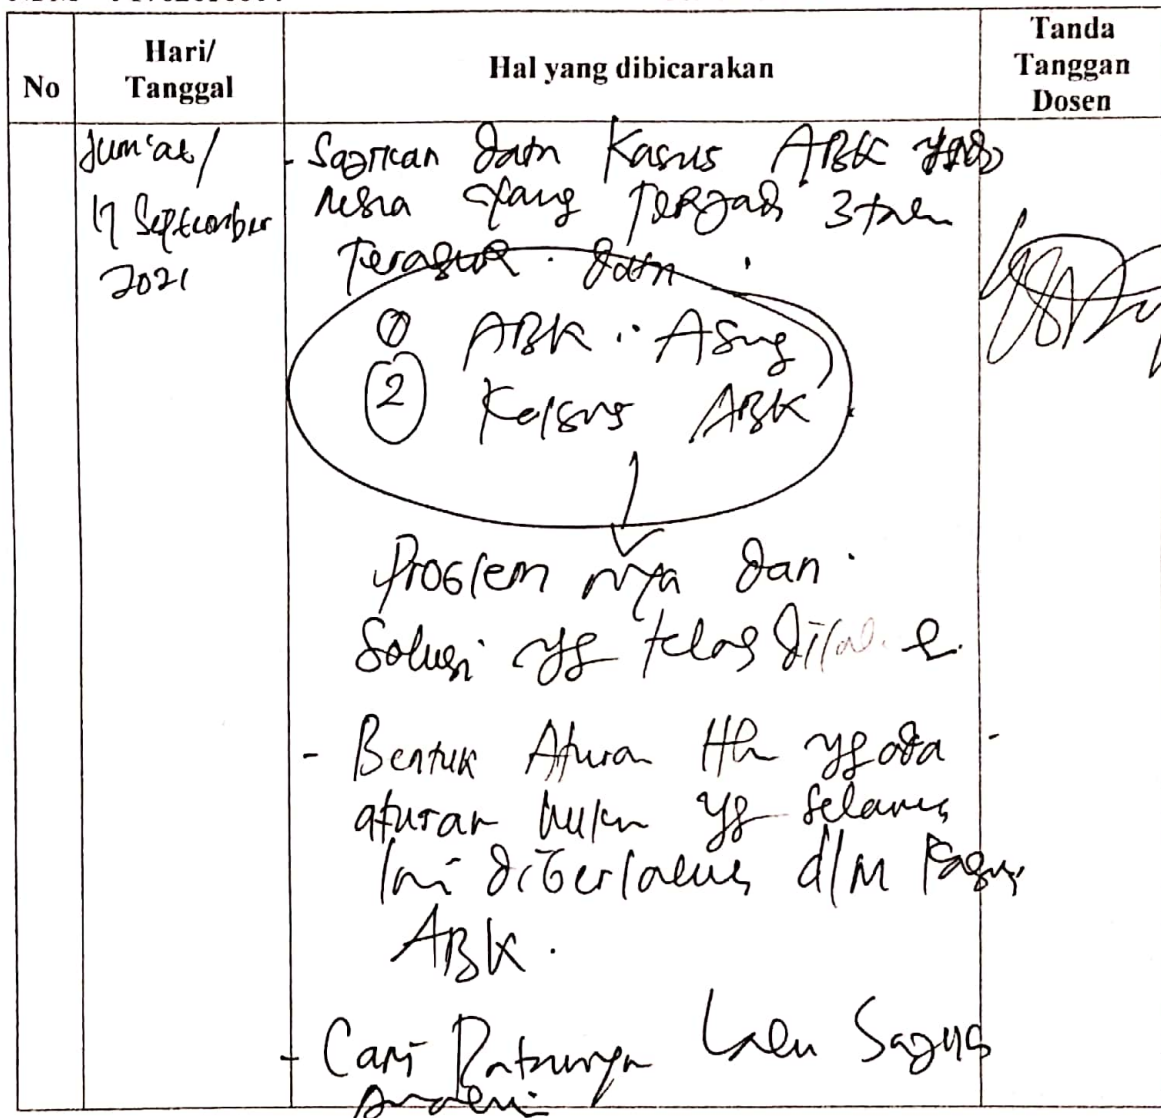 No
Hari/
Tanggal
Hal yang dibicarakan
Tanda
Tanggan
Dosen
Jum'at/
17 September
2021
- Sajikan data Kasus ABK
yang terjadi 3
terakhir. data :
1 ABK : Asing
2 Kasus ABK
Problem nya dan
Solusi yg telah
- Bentuk Aturan Hk yg ada -
aturan hukum yg selama
ini diberlakukan dlm kasus
ABK.
- Cari Datanya Lalu Sajikan